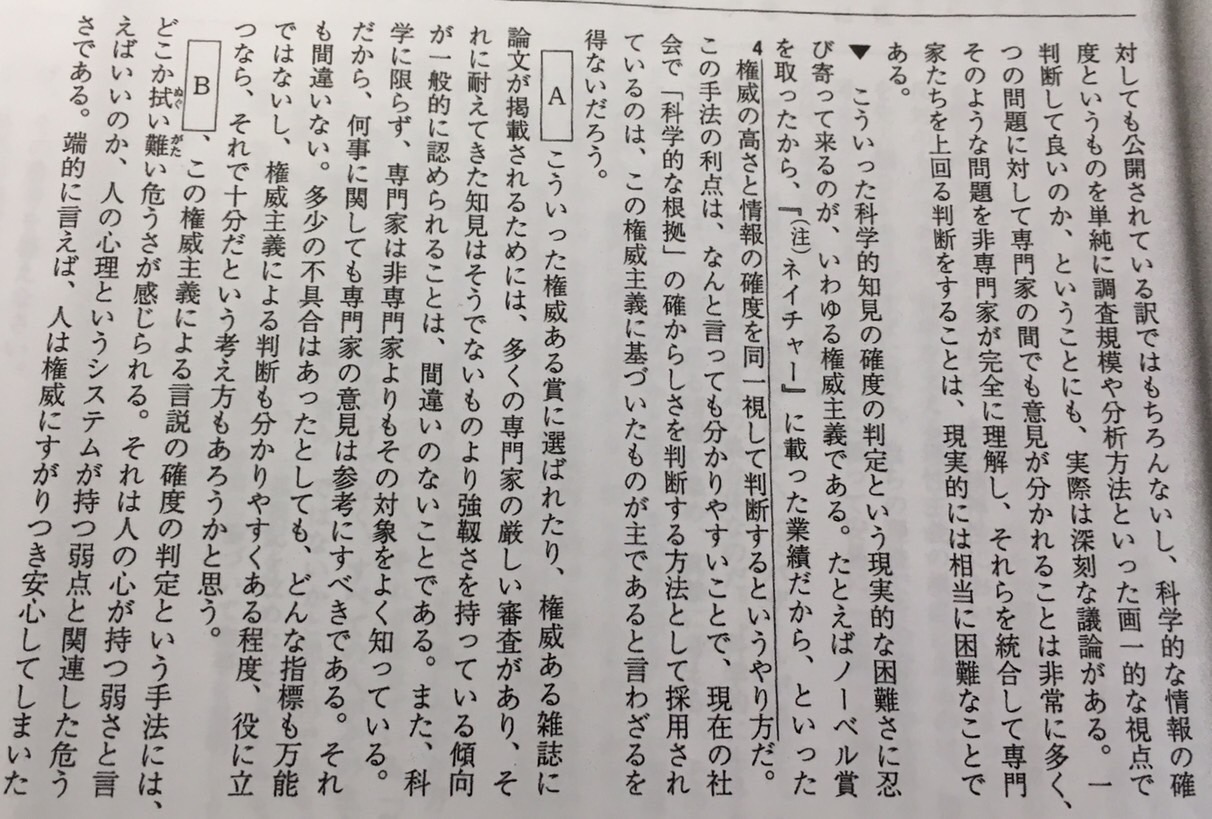 対しても公開されている訳ではもちろんないし、科学的な情報の確
度というものを単純に調査規模や分析方法といった画一的な視点で
判断して良いのか、ということにも、実際は深刻な議論がある。一
つの問題に対して専門家の間でも意見が分かれることは非常に多く、
そのような問題を非専門家が完全に理解し、それらを統合して専門
家たちを上回る判断をすることは、現実的には相当に困難なことで
ある。
▼ こういった科学的知見の確度の判定という現実的な困難さに忍
び寄って来るのが、いわゆる権威主義である。たとえばノーベル賞
を取ったから、『(注)ネイチャー』に載った業績だから、といった
4権威の高さと情報の確度を同一視して判断するというやり方だ。
この手法の利点は、なんと言っても分かりやすいことで、現在の社
会で「科学的な根拠」の確からしさを判断する方法として採用され
ているのは、この権威主義に基づいたものが主であると言わざるを
得ないだろう。
A こういった権威ある賞に選ばれたり、権威ある雑誌に
論文が掲載されるためには、多くの専門家の厳しい審査があり、そ
れに耐えてきた知見はそうでないものより強靱さを持っている傾向
が一般的に認められることは、間違いのないことである。また、科
学に限らず、専門家は非専門家よりもその対象をよく知っている。
だから、何事に関しても専門家の意見は参考にすべきである。それ
も間違いない。多少の不具合はあったとしても、どんな指標も万能
ではないし、権威主義による判断も分かりやすくある程度、役に立
つなら、それで十分だという考え方もあろうかと思う。
B、この権威主義による言説の確度の判定という手法には、
どこか拭い難い危うさが感じられる。それは人の心が持つ弱さと言
えばいいのか、人の心理というシステムが持つ弱点と関連した危う
さである。端的に言えば、人は権威にすがりつき安心してしまいた